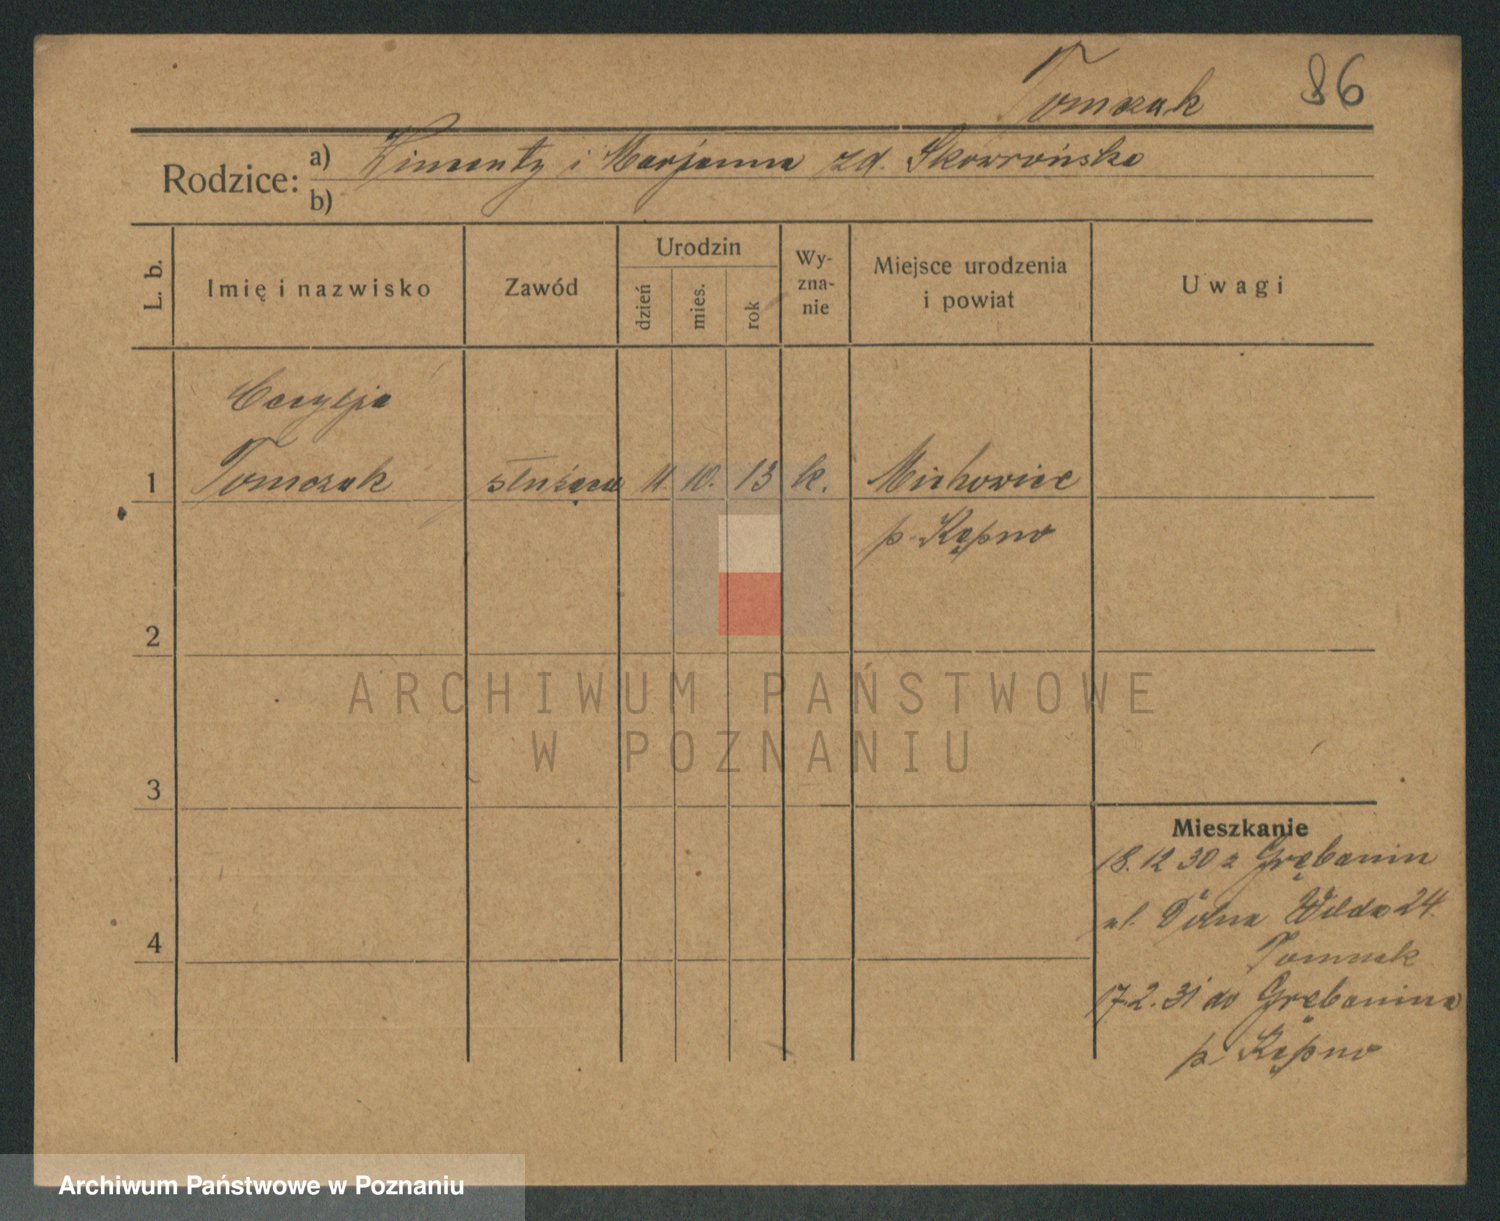 Tomczak 86
Rodzice: a) Wincenty i Marjanna zd. Skowrońska
b)
L. b. Imię i nazwisko Zawód Urodzin dzień mies. rok Wy-zna-nie Miejsce urodzenia i powiat Uwagi
Cecylja
1 Tomczak służąca 11 10. 13 k. Michowice
p. Kępno
2
ARCHIWUM PAŃSTWOWE
W POZNANIU
3
Mieszkanie
18. 12 30 z Grębanin
ul. Dolna Wilda 24.
4
Tomczak
17. 2. 31 do Grębanina
p. Kępno
Archiwum Państwowe w Poznaniu